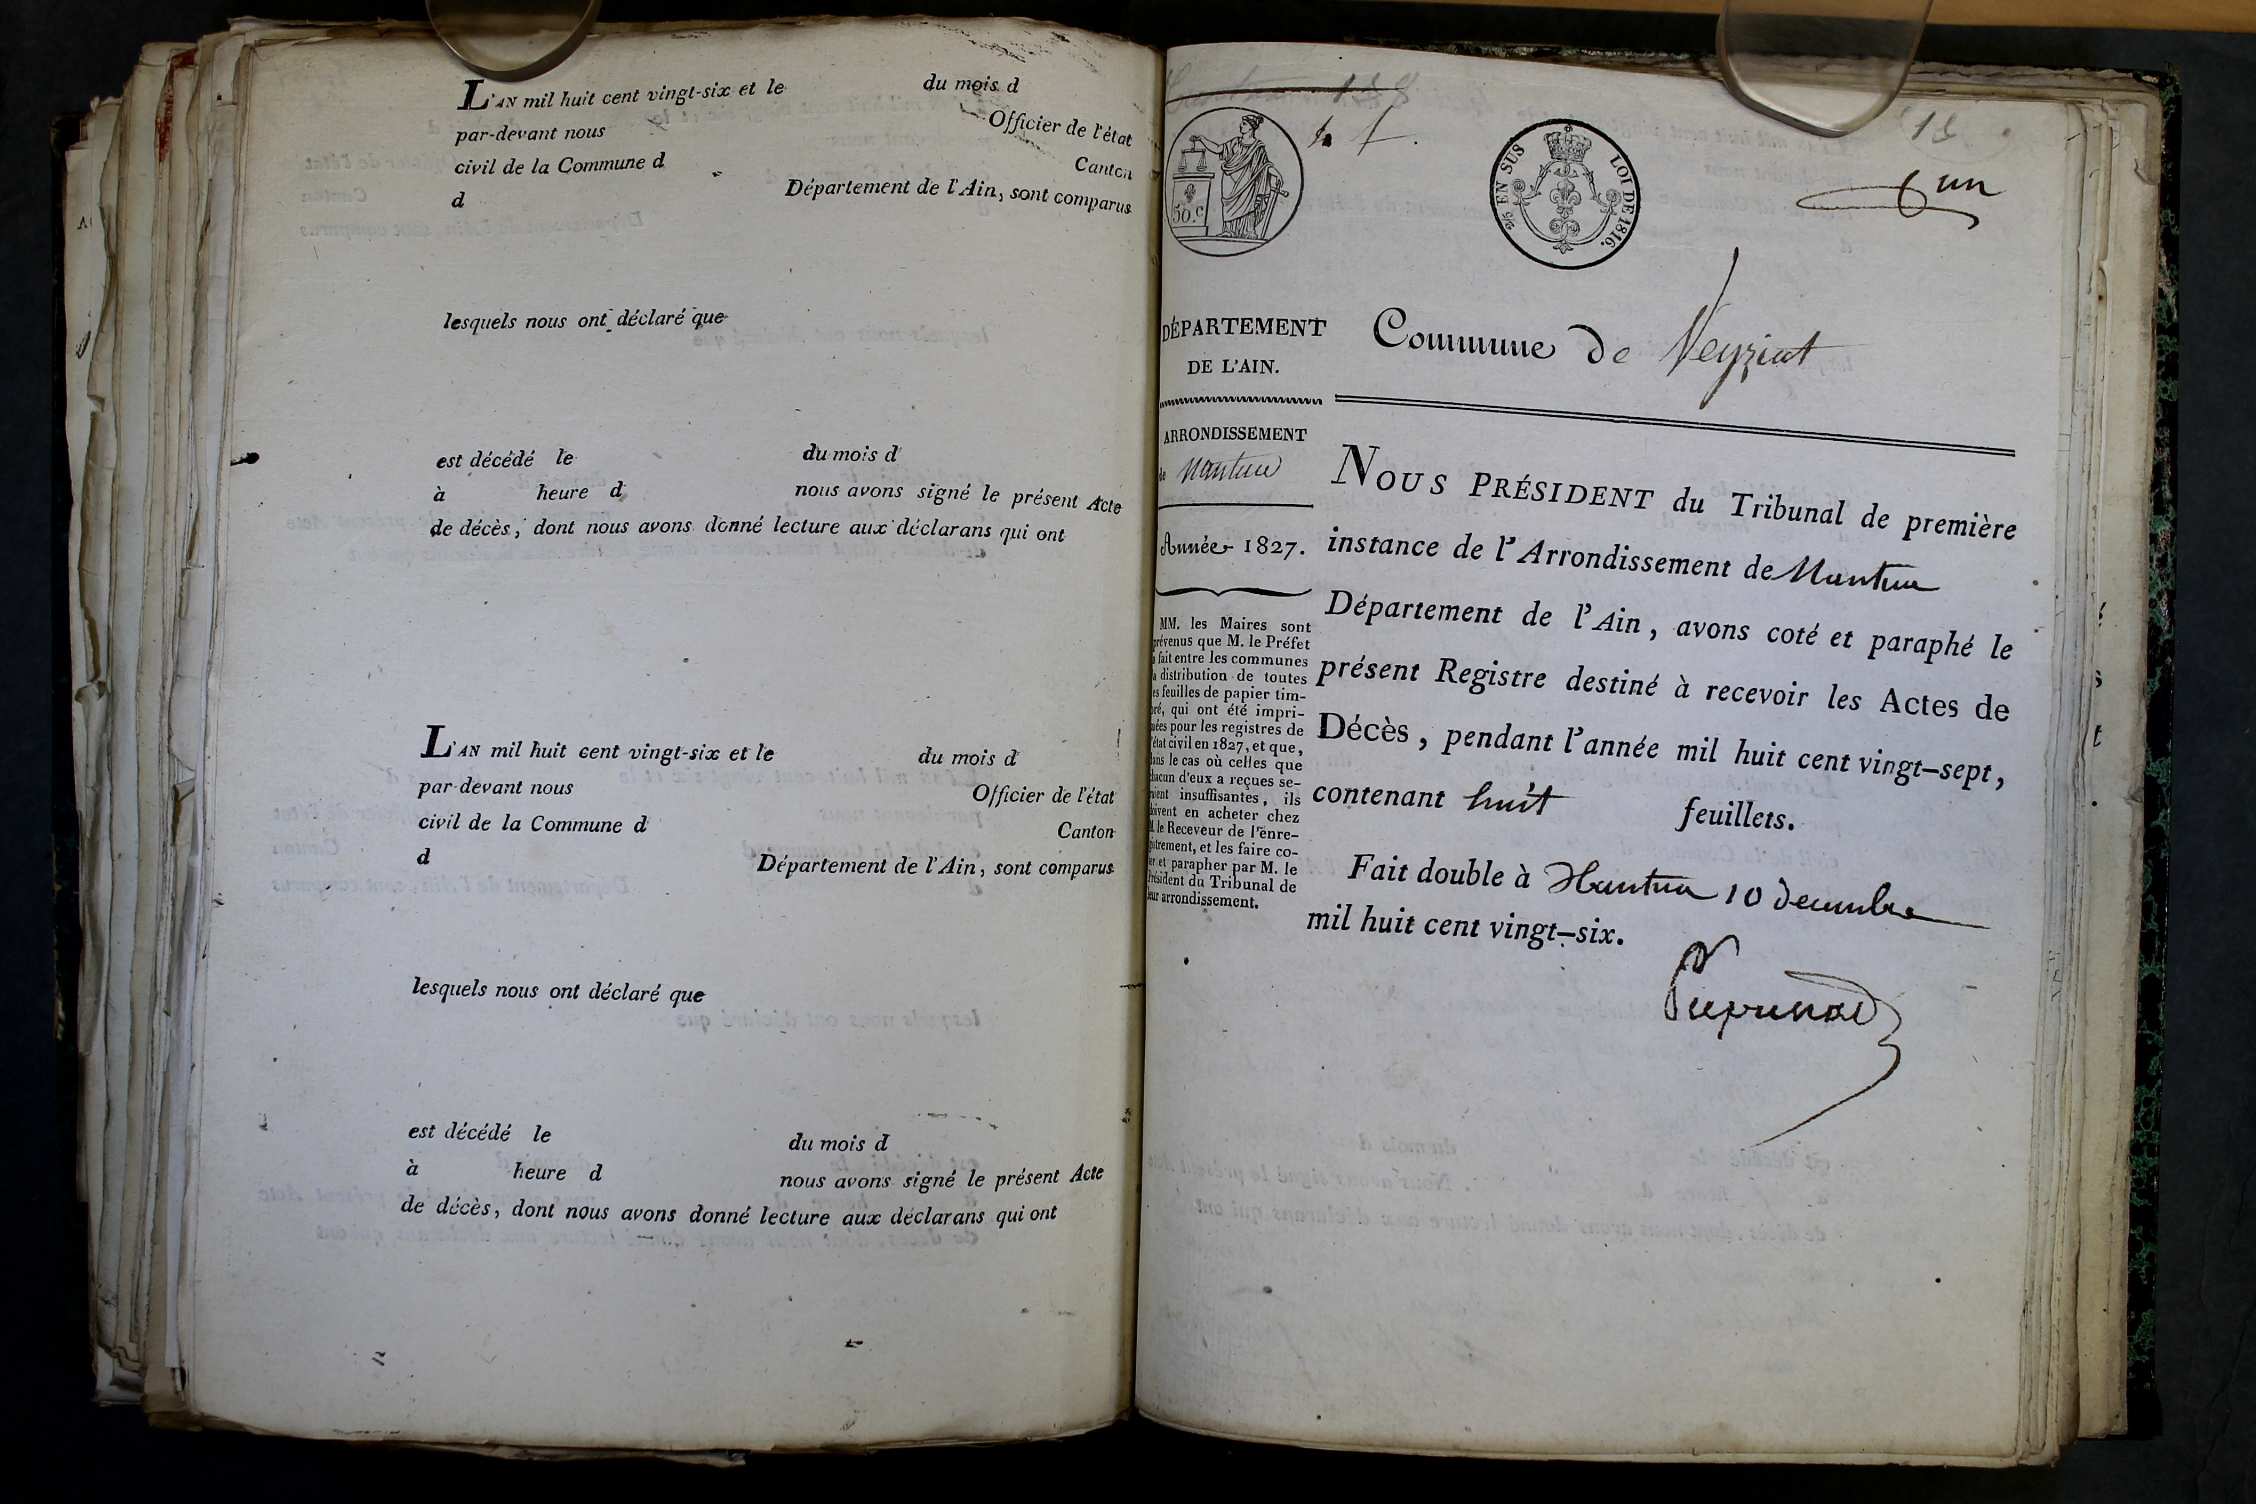 L'AN mil huit cent vingt-six et le du mois d
par-devant nous Officier de l'état
civil de la Commune d Canton
d Département de l'Ain, sont comparus
lesquels nous ont déclaré que
est décédé le du mois d
à heure d nous avons signé le présent Acte
de décès, dont nous avons donné lecture aux déclarans qui ont
L'AN mil huit cent vingt-six et le du mois d
par-devant nous Officier de l'état
civil de la Commune d Canton
d Département de l'Ain, sont comparus
lesquels nous ont déclaré que
est décédé le du mois d
à heure d nous avons signé le présent Acte
de décès, dont nous avons donné lecture aux déclarans qui ont
50.c
EN SUS LOI DE 1816.
un
DÉPARTEMENT
DE L'AIN.
Commune de Veyziat
ARRONDISSEMENT
de Nantua
Année 1827.
MM. les Maires sont
prévenus que M. le Préfet
a fait entre les communes
la distribution de toutes
les feuilles de papier tim-
bré, qui ont été impri-
mées pour les registres de
l'état civil en 1827, et que,
dans le cas où celles que
chacun d'eux a reçues se-
roient insuffisantes, ils
doivent en acheter chez
M. le Receveur de l'enre-
gistrement, et les faire co-
ter et parapher par M. le
Président du Tribunal de
leur arrondissement.
NOUS PRÉSIDENT du Tribunal de première
instance de l'Arrondissement de Nantua
Département de l'Ain, avons coté et paraphé le
présent Registre destiné à recevoir les Actes de
Décès, pendant l'année mil huit cent vingt-sept,
contenant huit feuillets.
Fait double à Nantua 10 decembre
mil huit cent vingt-six.